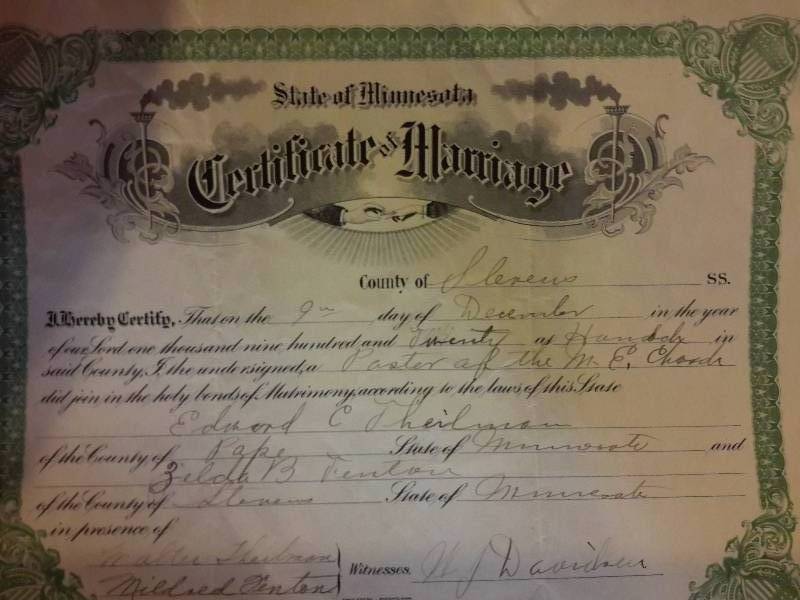 State of Minnesota
Certificate of Marriage
County of Stevens SS.
I Hereby Certify, That on the 9th day of December in the year
of our Lord one thousand nine hundred and Twenty at in
said County, I, the undersigned, a Pastor of the M. E. Church
did join in the holy bonds of Matrimony, according to the laws of this State
Edward C Theilman
of the County of Pope State of Minnesota and
Zelda B Fenton
of the County of Stevens State of Minnesota
in presence of
Walter Theilman
Mildred Fenton Witnesses. W J Davidson